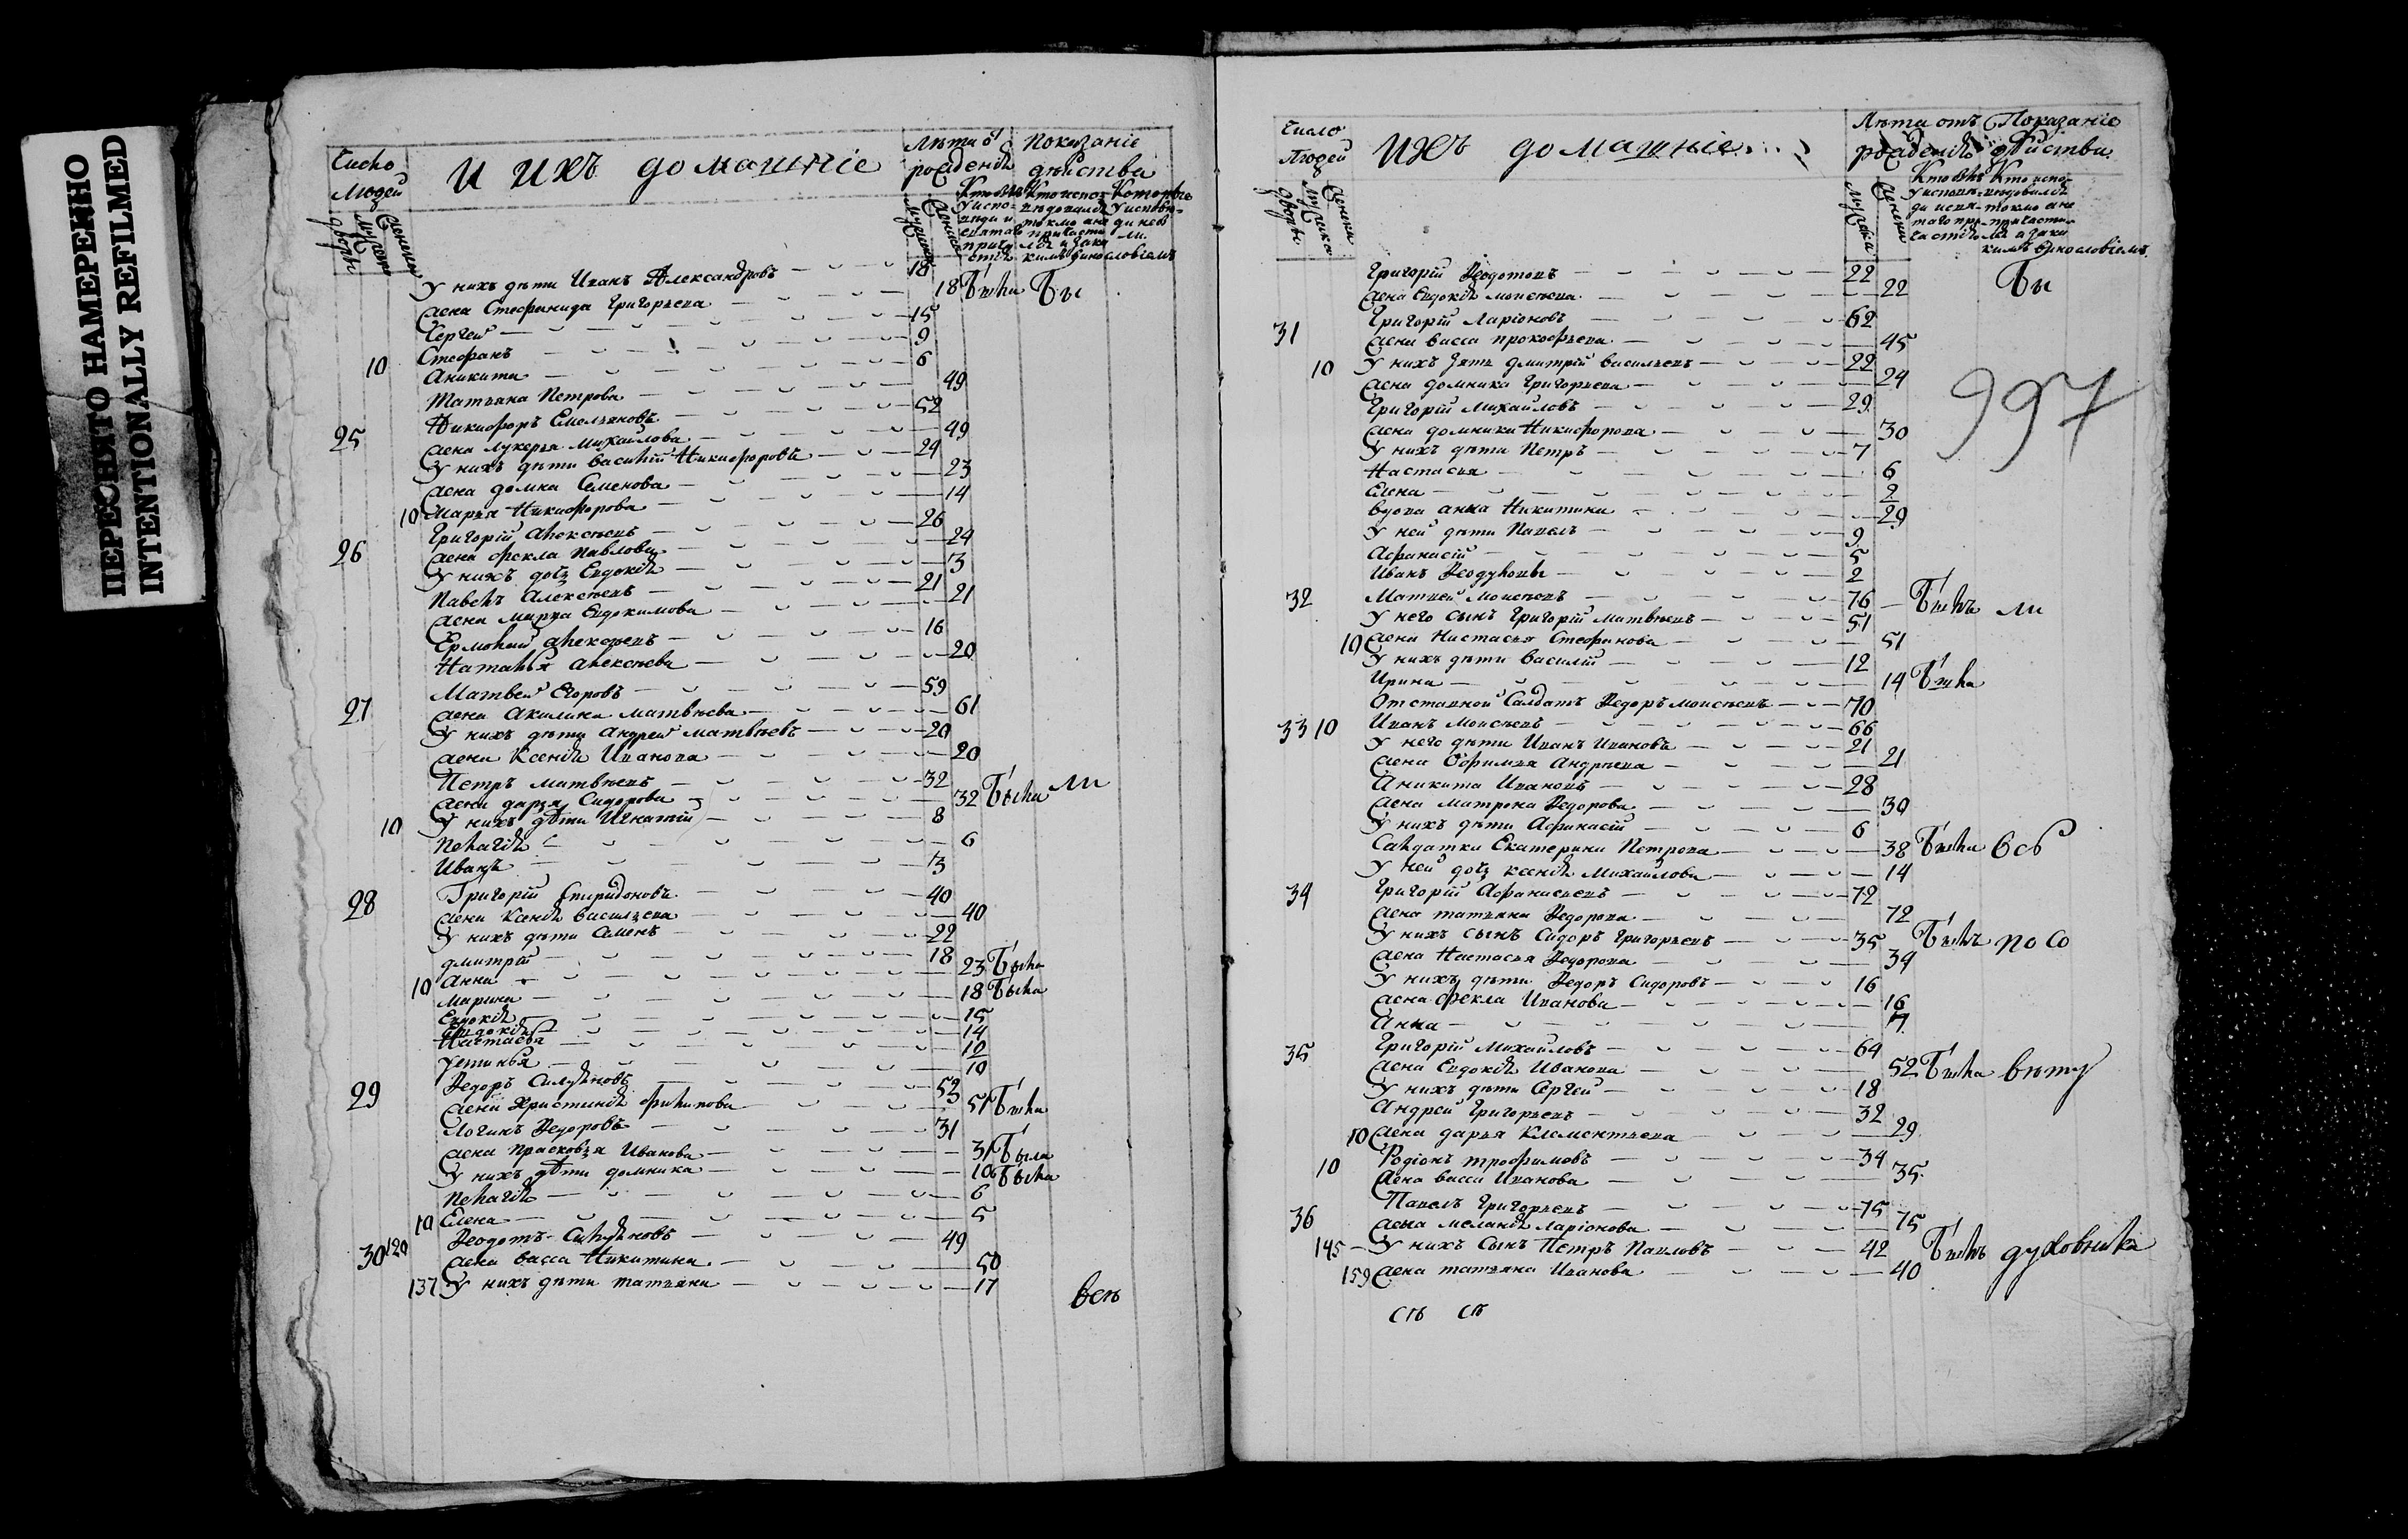 ПЕРЕСНЯТО НАМЕРЕННО
INTENTIONALLY REFILMED
Число Людей
И ихъ домашніе
Лѣта ѿ рожденія
Показаніе дѣйства
дворы
мужеска
женска
У нихъ дѣти Иванъ Александровъ 18
жена Стефанида Григорьева 18 Была Бы
Сергей 15
Стефанъ 9
10 Аникита 6
Татьяна Петрова 49
25 Никифоръ Емельяновъ 52
жена Лукерья Михайлова 49
У нихъ дѣти Василій Никифоровъ 24
жена Домна Семенова 23
10 Марья Никифорова 14
26 Григорій Алексѣевъ 26
жена Фекла Павлова 24
У нихъ дочь Евдокія 3
Павелъ Алексѣевъ 21
жена Марѳа Евдокимова 21
Ермолай Алексѣевъ 16
Наталья Алексѣева 20
27 Матвей Егоровъ 59
жена Акилина Матвѣева 61
У нихъ дѣти Андрей Матвѣевъ 20
жена Ксенія Иванова 20
Петръ Матвѣевъ 32
жена Дарья Сидорова 32 Была ли
10 У нихъ дѣти Игнатій 8
Пелагія 6
Иванъ 3
28 Григорій Спиридоновъ 40
жена Ксенія Васильева 40
У нихъ дѣти Семенъ 22
Дмитрій 18
10 Анна 23 Была
Марина 18 Была
Евдокія 15
Евдокія 14
Настасья 12
Устинья 10
29 Ѳедоръ Самуйловъ 53
жена Христинія Филипова 51 Была
Логинъ Ѳедоровъ 31
жена Прасковья Иванова 31 Была
У нихъ дѣти Домника 10 Была
Пелагія 6
10 Елена 5
30 120 Ѳеодотъ 49
жена Васса Никитина 50
137 У нихъ дѣти Татьяна 17
всѣ
Число Людей
ихъ домашніе
Лѣта отъ рожденія
Показаніе дѣйства
дворы
мужеска
женска
Григорій Ѳеодотовъ 22
жена Евдокія Моисѣева 22 Бы
31 Григорій Ларіоновъ 62
жена Васса Прокофьева 45
10 У нихъ зять Дмитрій Васильевъ 22
жена Домника Григорьева 24
997
Григорій Михайловъ 29
жена Домника Никифорова 30
У нихъ дѣти Петръ 7
Настасья 6
Елена 2
вдова Анна Никитина 29
У ней дѣти Павелъ 9
Афанасій 5
Иванъ Ѳеодуловы 2
32 Матвей Моисѣевъ 76 Былъ ли
У него сынъ Григорій Матвѣевъ 51
10 жена Настасья Стефанова 51
У нихъ дѣти Василій 12
Ирина 14 Была
Отставной Салдатъ Ѳедоръ Моисѣевъ 70
33 10 Иванъ Моисѣевъ 66
У него дѣти Иванъ Ивановъ 21
жена Ефимья Андрѣева 21
Аникита Ивановъ 28
жена Матрона Ѳедорова 30
У нихъ дѣти Афанасій 6
Салдатка Екатерина Петрова 38 Была
У ней дочь Ксенія Михайлова 14
34 Григорій Афанасьевъ 72
жена Татьяна Ѳедорова 72
У нихъ сынъ Сидоръ Григорьевъ 35 Былъ по со
жена Настасья Ѳедорова 34
У нихъ дѣти Ѳедоръ Сидоровъ 16
жена Фекла Иванова 16
Анна 7
35 Григорій Михайловъ 64
жена Евдокія Иванова 52 Была
У нихъ дѣти Сергей 18
Андрей Григорьевъ 32
10 жена Дарья Клементьева 29
10 Родіонъ Трофимовъ 34
жена Васса Иванова 35
36 Павелъ Григорьевъ 75
жена Меланія Ларіонова 75
145 У нихъ Сынъ Петръ Павловъ 42 Былъ духовника
159 жена Татьяна Иванова 40